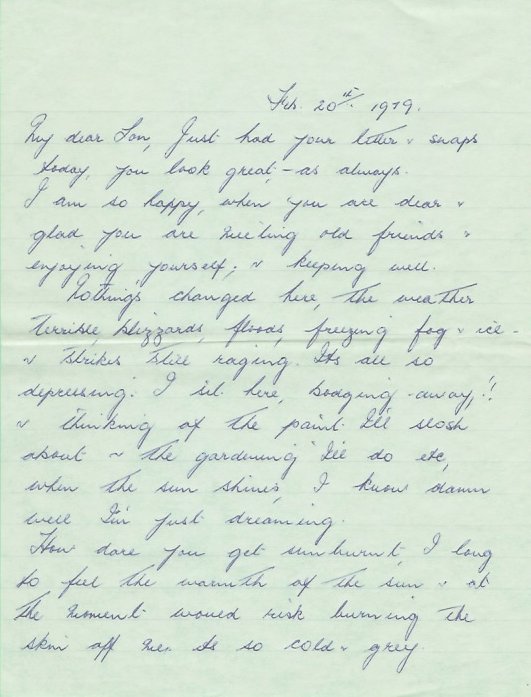 Feb. 20th 1979.
My dear Son, Just had your letter & snaps
today, you look great, - as always.
I am so happy, when you are dear &
glad you are meeting old friends &
enjoying yourself; & keeping well.
Nothing's changed here, the weather
terrible, blizzards, floods, freezing fog & ice -
& strikes still raging. Its all so
depressing. I sit here, bodging away,!!
& thinking of the paint I'll slosh
about & the gardening I'll do etc,
when the sun shines, I know damn
well I'm just dreaming.
How dare you get sunburnt, I long
to feel the warmth of the sun & at
the moment would risk burning the
skin off me. Its so cold & grey.